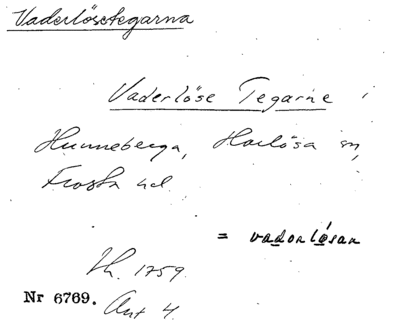 Vaderlösetegarna
Vaderlöse Tegarne i
Hunneberga, Harlösa sn,
Frosta hd.
= vadorlösan
Lh. 1759.
Nr 6769. Akt 4.